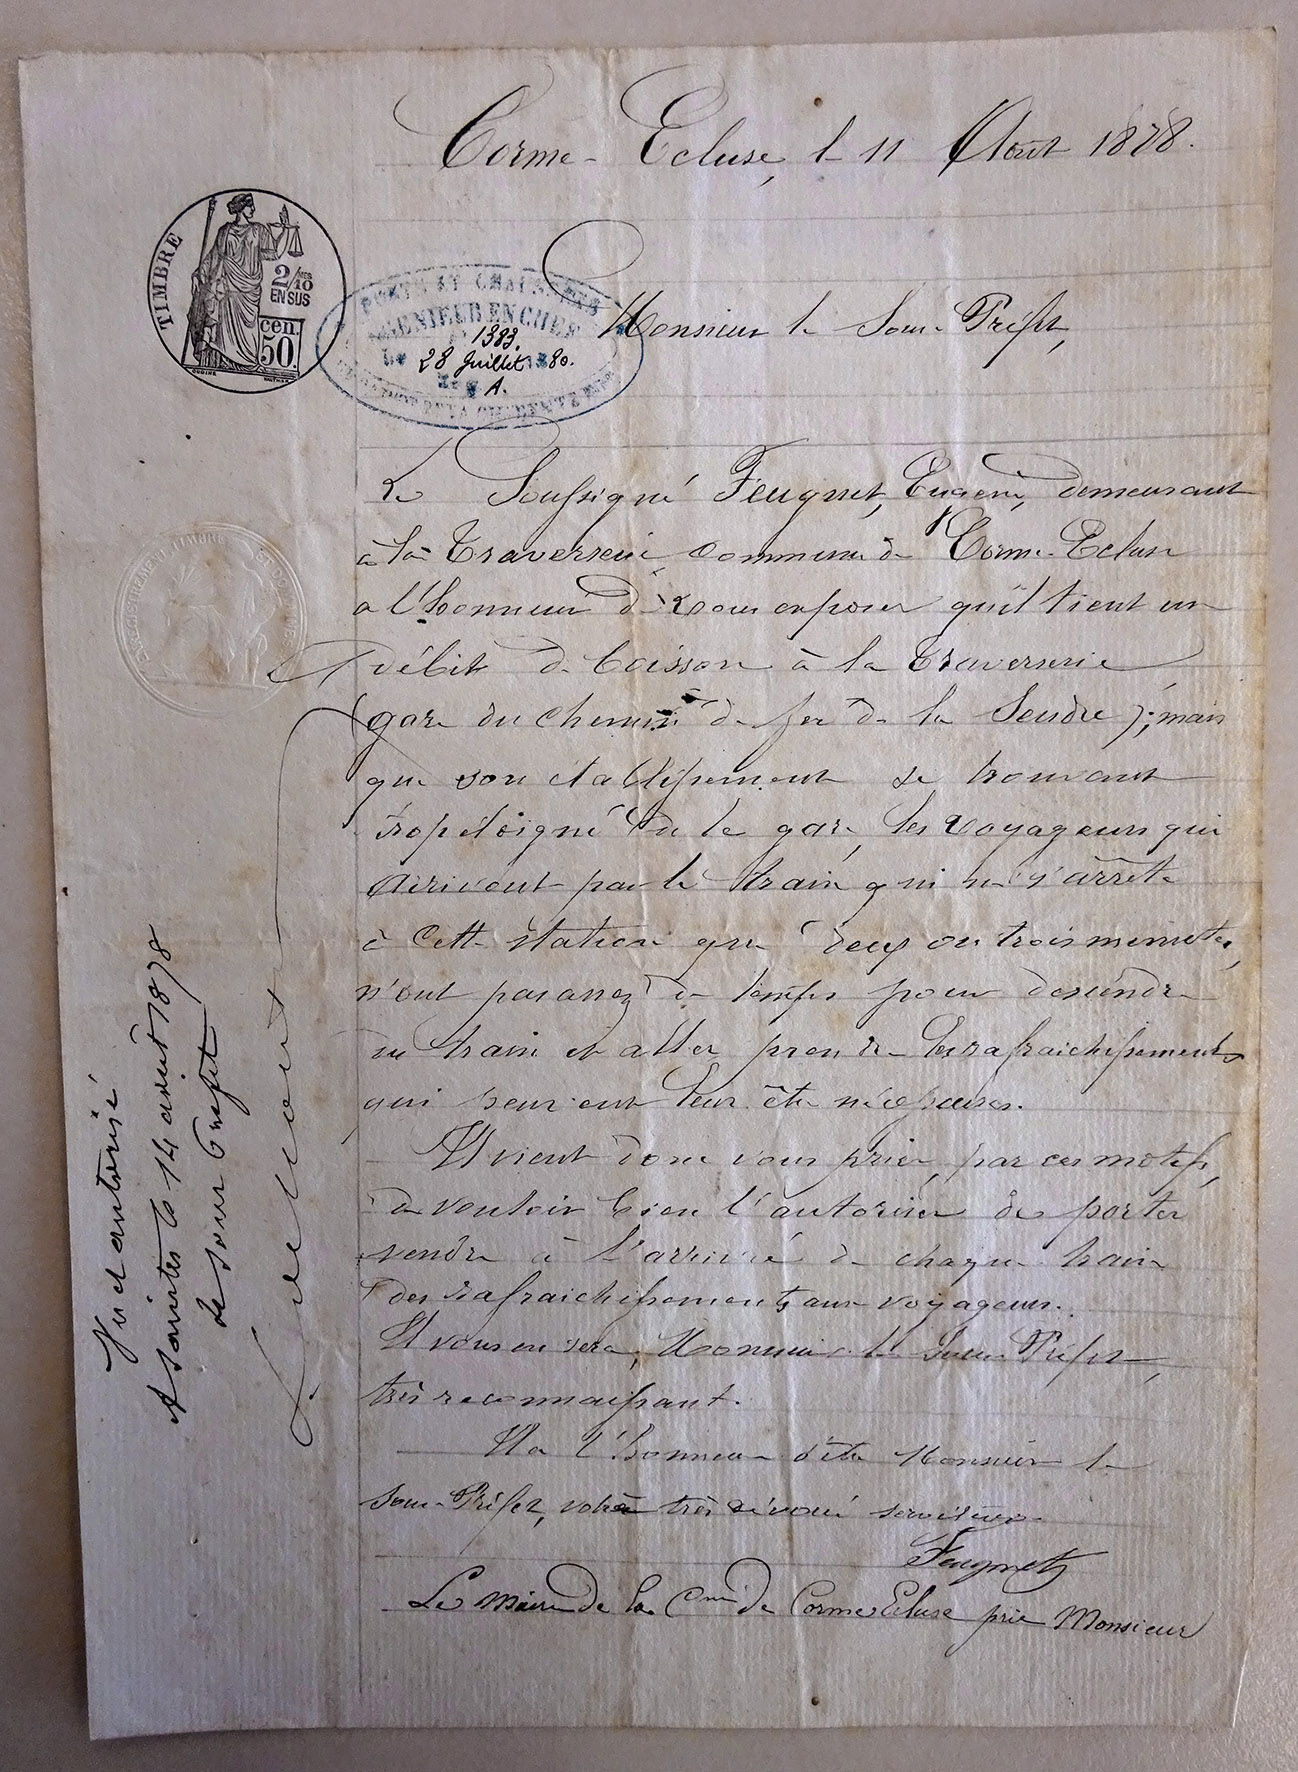 Corme-Ecluse, le 11 Août 1878.
TIMBRE
2/10 MES
EN SUS
cen.
50
OUDINÉ
PONTS ET CHAUSSÉES
INGÉNIEUR EN CHEF
1383.
28 Juillet 1880.
A.
DE LA CHARENTE INFRE
Monsieur le Sous-Préfet,
Le Soussigné Feugnet, Eugène, demeurant
à la Traverserie commune de Corme-Ecluse
a l'honneur de vous exposer qu'il tient un
débit de boisson à la Traverserie
(gare du chemin de fer de la Seudre); mais
que son établissement se trouvant
trop éloigné de la gare, les voyageurs qui
arrivent par le train qui ne s'arrête
à cette station que deux ou trois minutes,
n'ont pas assez de temps pour descendre
du train et aller prendre les rafraichissements
qui peuvent leur être nécessaires.
Il vient donc vous prier, par ces motifs,
de vouloir bien l'autoriser de porter
vendre à l'arrivée de chaque train
des rafraichissements aux voyageurs.
Il vous en sera, Monsieur le Sous-Préfet,
très reconnaissant.
Il a l'honneur d'être Monsieur le
Sous-Préfet, votre très dévoué serviteur
Feugnet
Le Maire de la Cne de Corme Ecluse prie Monsieur
ENREGISTREMENT TIMBRE ET DOMAINES
Vu et autorisé
A Saintes le 14 aout 1878
Le Sous Préfet